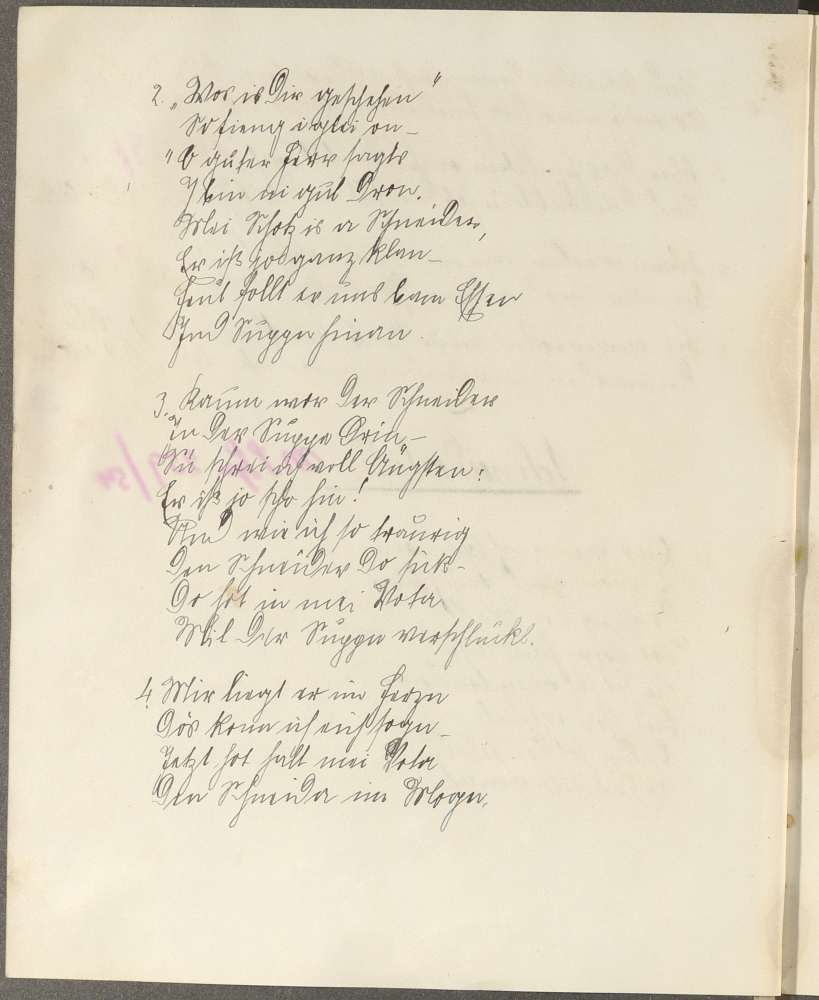 2. „Wos is Dir geschehen"
So fieng i glei on –
"O guter Herr sagts
I bin ni gut Dron.
Mei Schotz is a Schneider,
Er iß jo ganz klan –
Heut follt er uns bam Essen
Ind Suppn hinan.
3. Kaum wor der Schneider
In der Suppe Drin –
Du schrei ich voll Ängsten:
Er iß jo scho hin!
Und wie ich so traurig
Den Schneider Do suk –
Do hot in mei Vota
Mit Der Suppn verschluckt.
4. Mir liegt er im Herzn
Dös konn ich eich sogn –
Jetzt hot halt mei Vota
Den Schneida im Mogn.